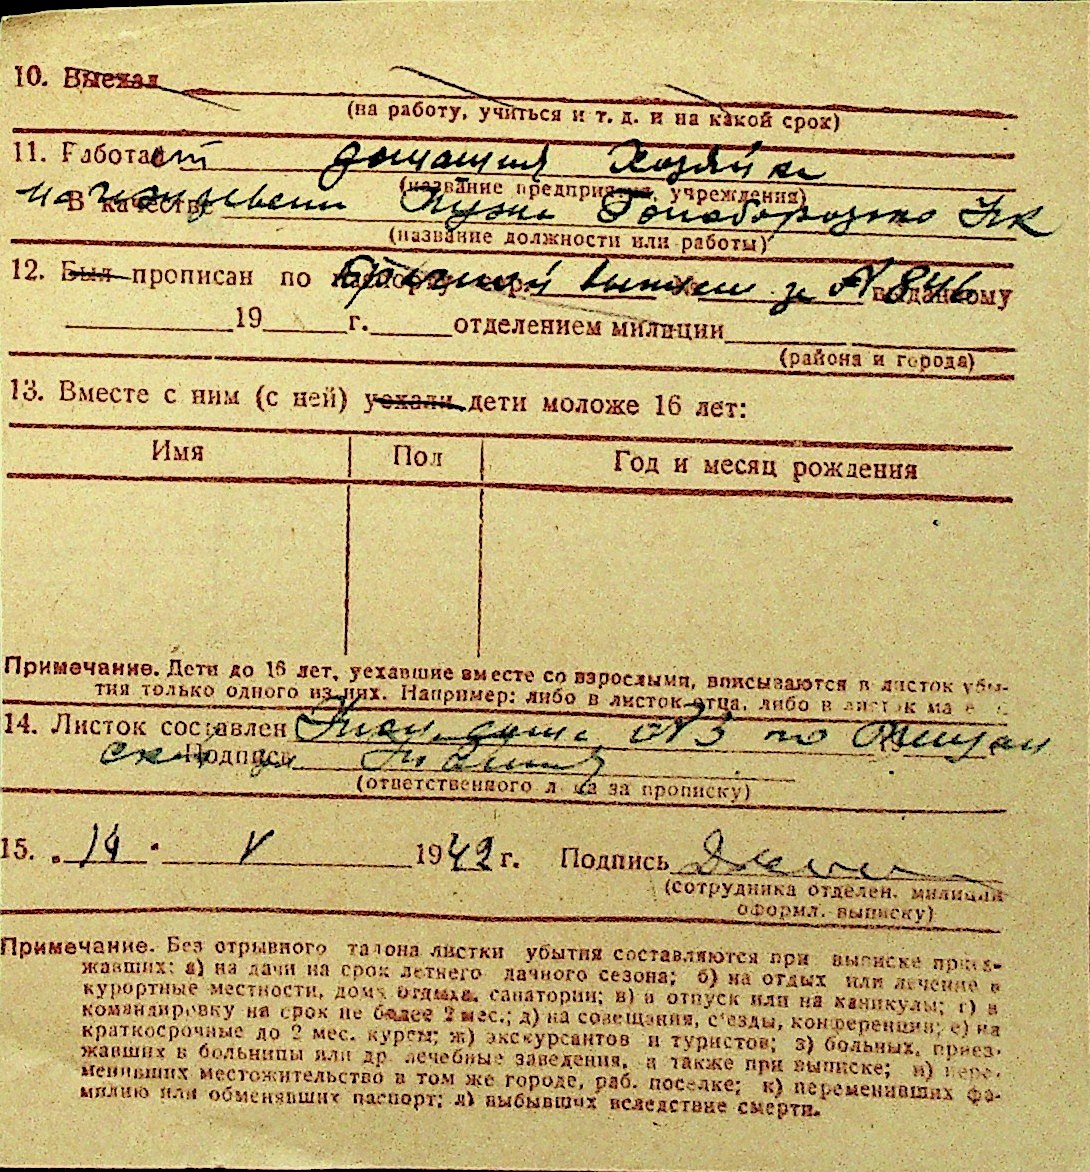 10. Выехал
(на работу, учиться и т. д. и на какой срок)
11. Работает домашняя хозяйка
(название предприятия, учреждения)
на иждивении мужа
В качестве
(название должности или работы)
12. Был прописан по паспорту выданному
№ 846
19 г. отделением милиции
(района и города)
13. Вместе с ним (с ней) уехали дети моложе 16 лет:
Имя Пол Год и месяц рождения
Примечание. Дети до 16 лет, уехавшие вместе со взрослыми, вписываются в листок убы-
тия только одного из них. Например: либо в листок отца, либо в листок
14. Листок составлен №3 по
Подпись
(ответственного лица за прописку)
15. „14" V 1942 г. Подпись
(сотрудника отделен. милиции
оформл. выписку)
Примечание. Без отрывного талона листки убытия составляются при выписке приез-
жавших: а) на дачи на срок летнего дачного сезона; б) на отдых или лечение в
курортные местности, дома отдыха, санатории; в) в отпуск или на каникулы; г) в
командировку на срок не более 2 мес.; д) на совещания, с'езды, конференции; е) на
краткосрочные до 2 мес. курсы; ж) экскурсантов и туристов; з) больных, приез-
жавших в больницы или др. лечебные заведения, а также при выписке; и) пере-
менивших местожительство в том же городе, раб. поселке; к) переменивших фа-
милию или обменявших паспорт; л) выбывших вследствие смерти.